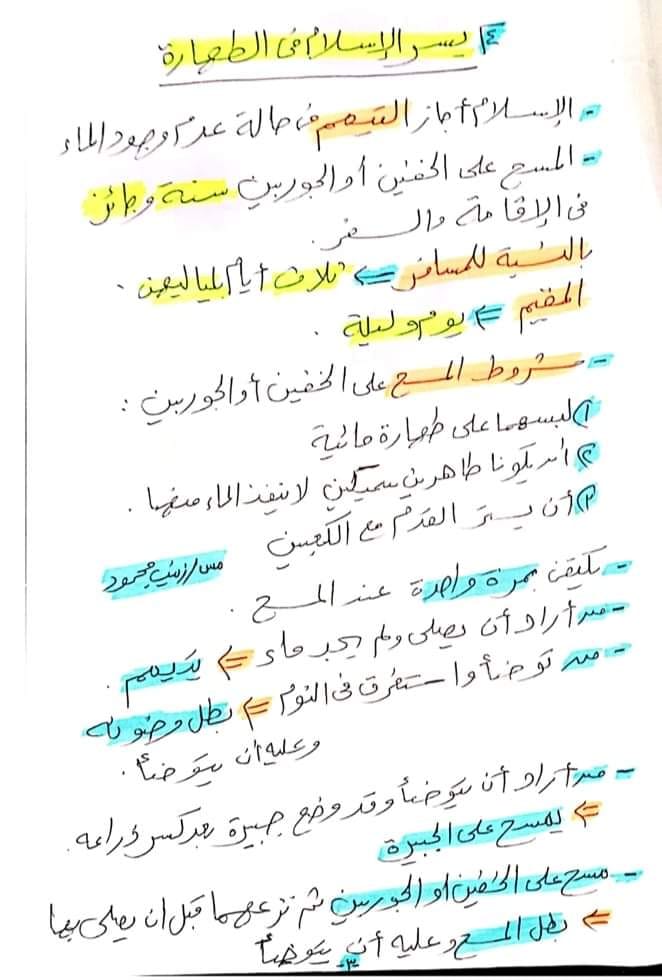 ٤ يسر الإسلام فى الطهارة
- الإسلام أجاز التيمم فى حالة عدم وجود الماء
- المسح على الخفين أو الجوربين سنة وجائز
فى الإقامة والسفر.
بالنسبة للمسافر ⇐ ثلاث أيام بلياليهن.
المقيم ⇐ يوم وليلة.
- شروط المسح على الخفين أو الجوربين :
١ لبسهما على طهارة مائية
٢ أن يكونا طاهرين سميكين لا ينفذ الماء منهما.
٣ أن يستر القدم مع الكعبين
مس/زينب محمود
- يكتفى بمرة واحدة عند المسح.
- من أراد أن يصلى ولم يجد ماء ⇐ يتيمم.
- من توضأ واستغرق فى النوم ⇐ بطل وضوئه
وعليه أن يتوضأ.
- من أراد أن يتوضأ وقد وضع جبيرة بعد كسر ذراعه.
⇐ يمسح على الجبيرة
- مسح على الخفين أو الجوربين ثم نزعهما قبل ان يصلى بهما
⇐ بطل المسح وعليه أن يتوضأ
-٣-